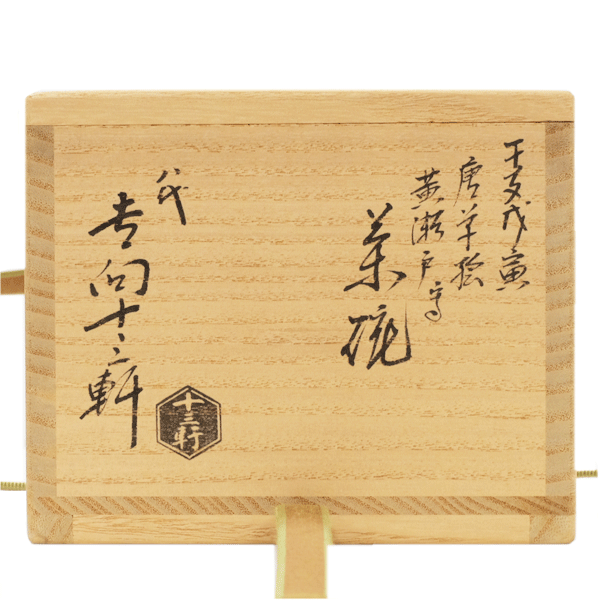 干支戊寅
唐草絵
黄瀬戸写
茶碗
八代
吉向十三軒
十三軒